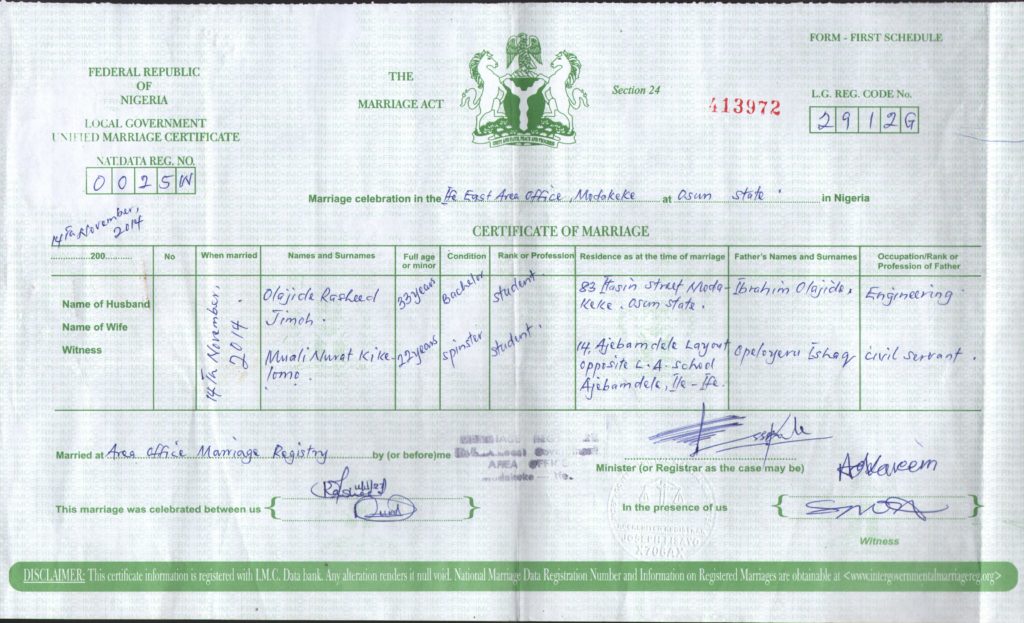 FORM - FIRST SCHEDULE
FEDERAL REPUBLIC
OF
NIGERIA
LOCAL GOVERNMENT
UNIFIED MARRIAGE CERTIFICATE
NAT.DATA REG. NO.
0025W
THE
MARRIAGE ACT
Section 24
413972
L.G. REG. CODE No.
2912G
Marriage celebration in the Ife East Area Office, Modakeke at Osun state. in Nigeria
14th November, 2014
200
CERTIFICATE OF MARRIAGE
No
When married
Names and Surnames
Full age or minor
Condition
Rank or Profession
Residence as at the time of marriage
Father's Names and Surnames
Occupation/Rank or Profession of Father
Name of Husband
Name of Wife
Witness
14th November, 2014.
Olajide Rasheed
Jimoh.
33 years
Bachelor
student.
83 Itasin street Moda-
keke. Osun state.
Ibrahim Olajide.
Engineering
Muali Nurat Kike
lomo.
22 years
spinster
student.
14, Ajebamdele Layout
opposite L.A. school
Ajebamdele, Ile-Ife.
Opeloyeru Ishaq
civil servant.
Married at Area Office Marriage Registry by (or before)me
AREA OFFICE
Minister (or Registrar as the case may be)
This marriage was celebrated between us
In the presence of us
Witness
DISCLAIMER: This certificate information is registered with I.M.C. Data bank. Any alteration renders it null void. National Marriage Data Registration Number and Information on Registered Marriages are obtainable at <www.intergovernmentalmarriagereg.org>